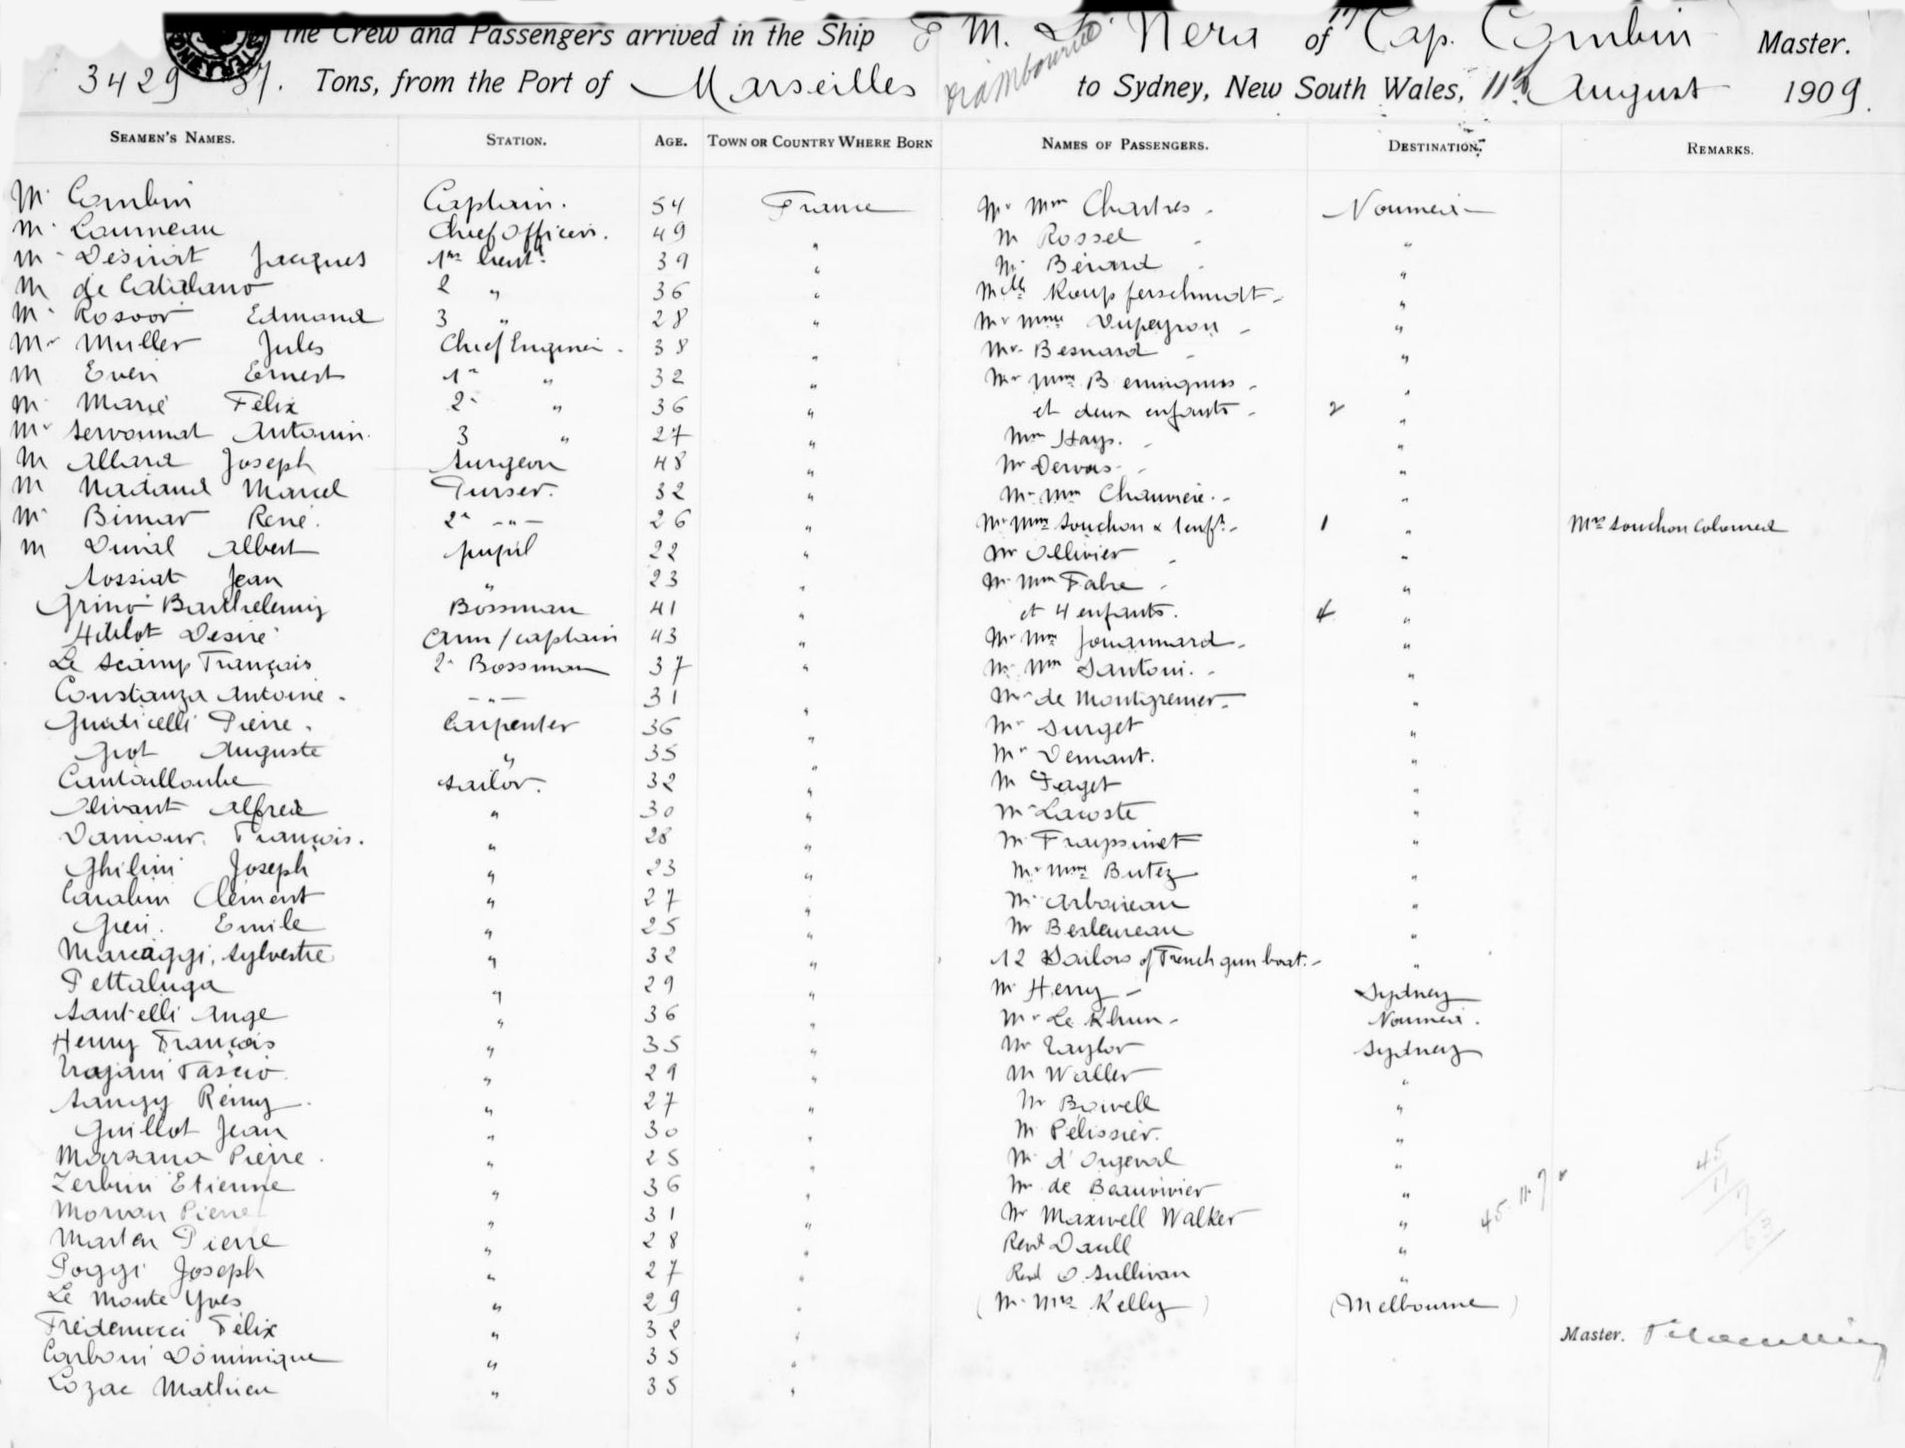 the Crew and Passengers arrived in the Ship F M. Sr Nera of Cap. Combin Master.
3429 57. Tons, from the Port of Marseilles to Sydney, New South Wales, 11th August 1909.
SEAMEN'S NAMES. STATION. AGE. TOWN OR COUNTRY WHERE BORN NAMES OF PASSENGERS. DESTINATION. REMARKS.
Mr Combin Captain. 54 France Mr Mme Chartres - Noumea
M. Laumeau Chief Officer. 49 " M Rossel - "
M Désirat Jacques 1er Lieut. 39 " M. Bérard - "
M de Catalano 2 " 36 " Melle Kaupferschmidt - "
M. Rosoor Edmond 3 " 28 " Mr Mme Dupeyron - "
Mr Muller Jules Chief Engineer. 38 " Mr. Besnard - "
M Even Ernest 1er " 32 " Mr Mme "
M Marie Félix 2e " 36 " et deux enfants - 2 "
Mr Servonnat Antonin. 3 " 27 " Mme Hays. - "
M Allard Joseph Surgeon 48 " Mr Dervos - "
M Nadaud Marcel Purser. 32 " Mr Mme Chauviere. - "
M Bimar René. 2e -"- 26 " Mr Mme Souchon & 1 enft. - 1 " Mrs Souchon coloured
M Duval Albert pupil 22 " Mr Ollivier - "
Sossiat Jean " 23 " Mr Mme Fabre - "
Grino Barthelemy Bossman 41 " et 4 enfants. 4 "
Hélot Desiré Arm/captain 43 " Mr Mme Jouannard - "
Le Scamp François 2e Bossman 37 " Mr Mme Santoni. - "
Constanza Antoine - -"- 31 " Mr de Montgrenier - "
Guaticelli Pierre. Carpenter 36 " Mr Surget "
Grot Auguste " 35 " Mr Demant. "
Cantalloube Sailor. 32 " M Faget "
Olivant Alfred " 30 " Mr Lacoste "
Damour. François. " 28 " M. Frayssinet "
Ghilini Joseph " 23 " Mr Mme Butez "
Caralin Clément " 27 " M. Arboireau "
Geri. Emile " 25 " Mr Besleureau "
Marcaggi, Sylvestre " 32 " 12 Sailors of French gun boat. - "
Pettaluga " 29 " M. Henry - Sydney
Santelli Ange " 36 " Mr Le Khun - Noumea.
Henry François " 35 " Mr Taylor Sydney
Trajani Tascio. " 29 " M Waller "
Sangy Rémy. " 27 " Mr Bowell "
Guillot Jean " 30 " M Pélissier. "
Marsana Pierre. " 25 " M. d'Orgeval "
Zerbini Etienne " 36 " Mr de Beauvivier "
Morvan Pierre " 31 " Mr Maxwell Walker "
Marten Pierre " 28 " Revd Daull "
Poggi Joseph " 27 " Revd O. Sullivan "
Le Monte Yves " 29 " (M. Mrs Kelly) (Melbourne)
Frédenucci Félix " 32 "
Master.
Carboni Dominique " 35 "
Lozac Mathieu " 35 "